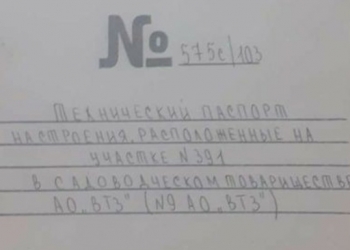 № 575с/103
ТЕХНИЧЕСКИЙ ПАСПОРТ
НА СТРОЕНИЯ, РАСПОЛОЖЕННЫЕ НА
УЧАСТКЕ N 391
В САДОВОДЧЕСКОМ ТОВАРИЩЕСТВЕ
АО „ВТЗ" (N9 АО „ВТЗ")